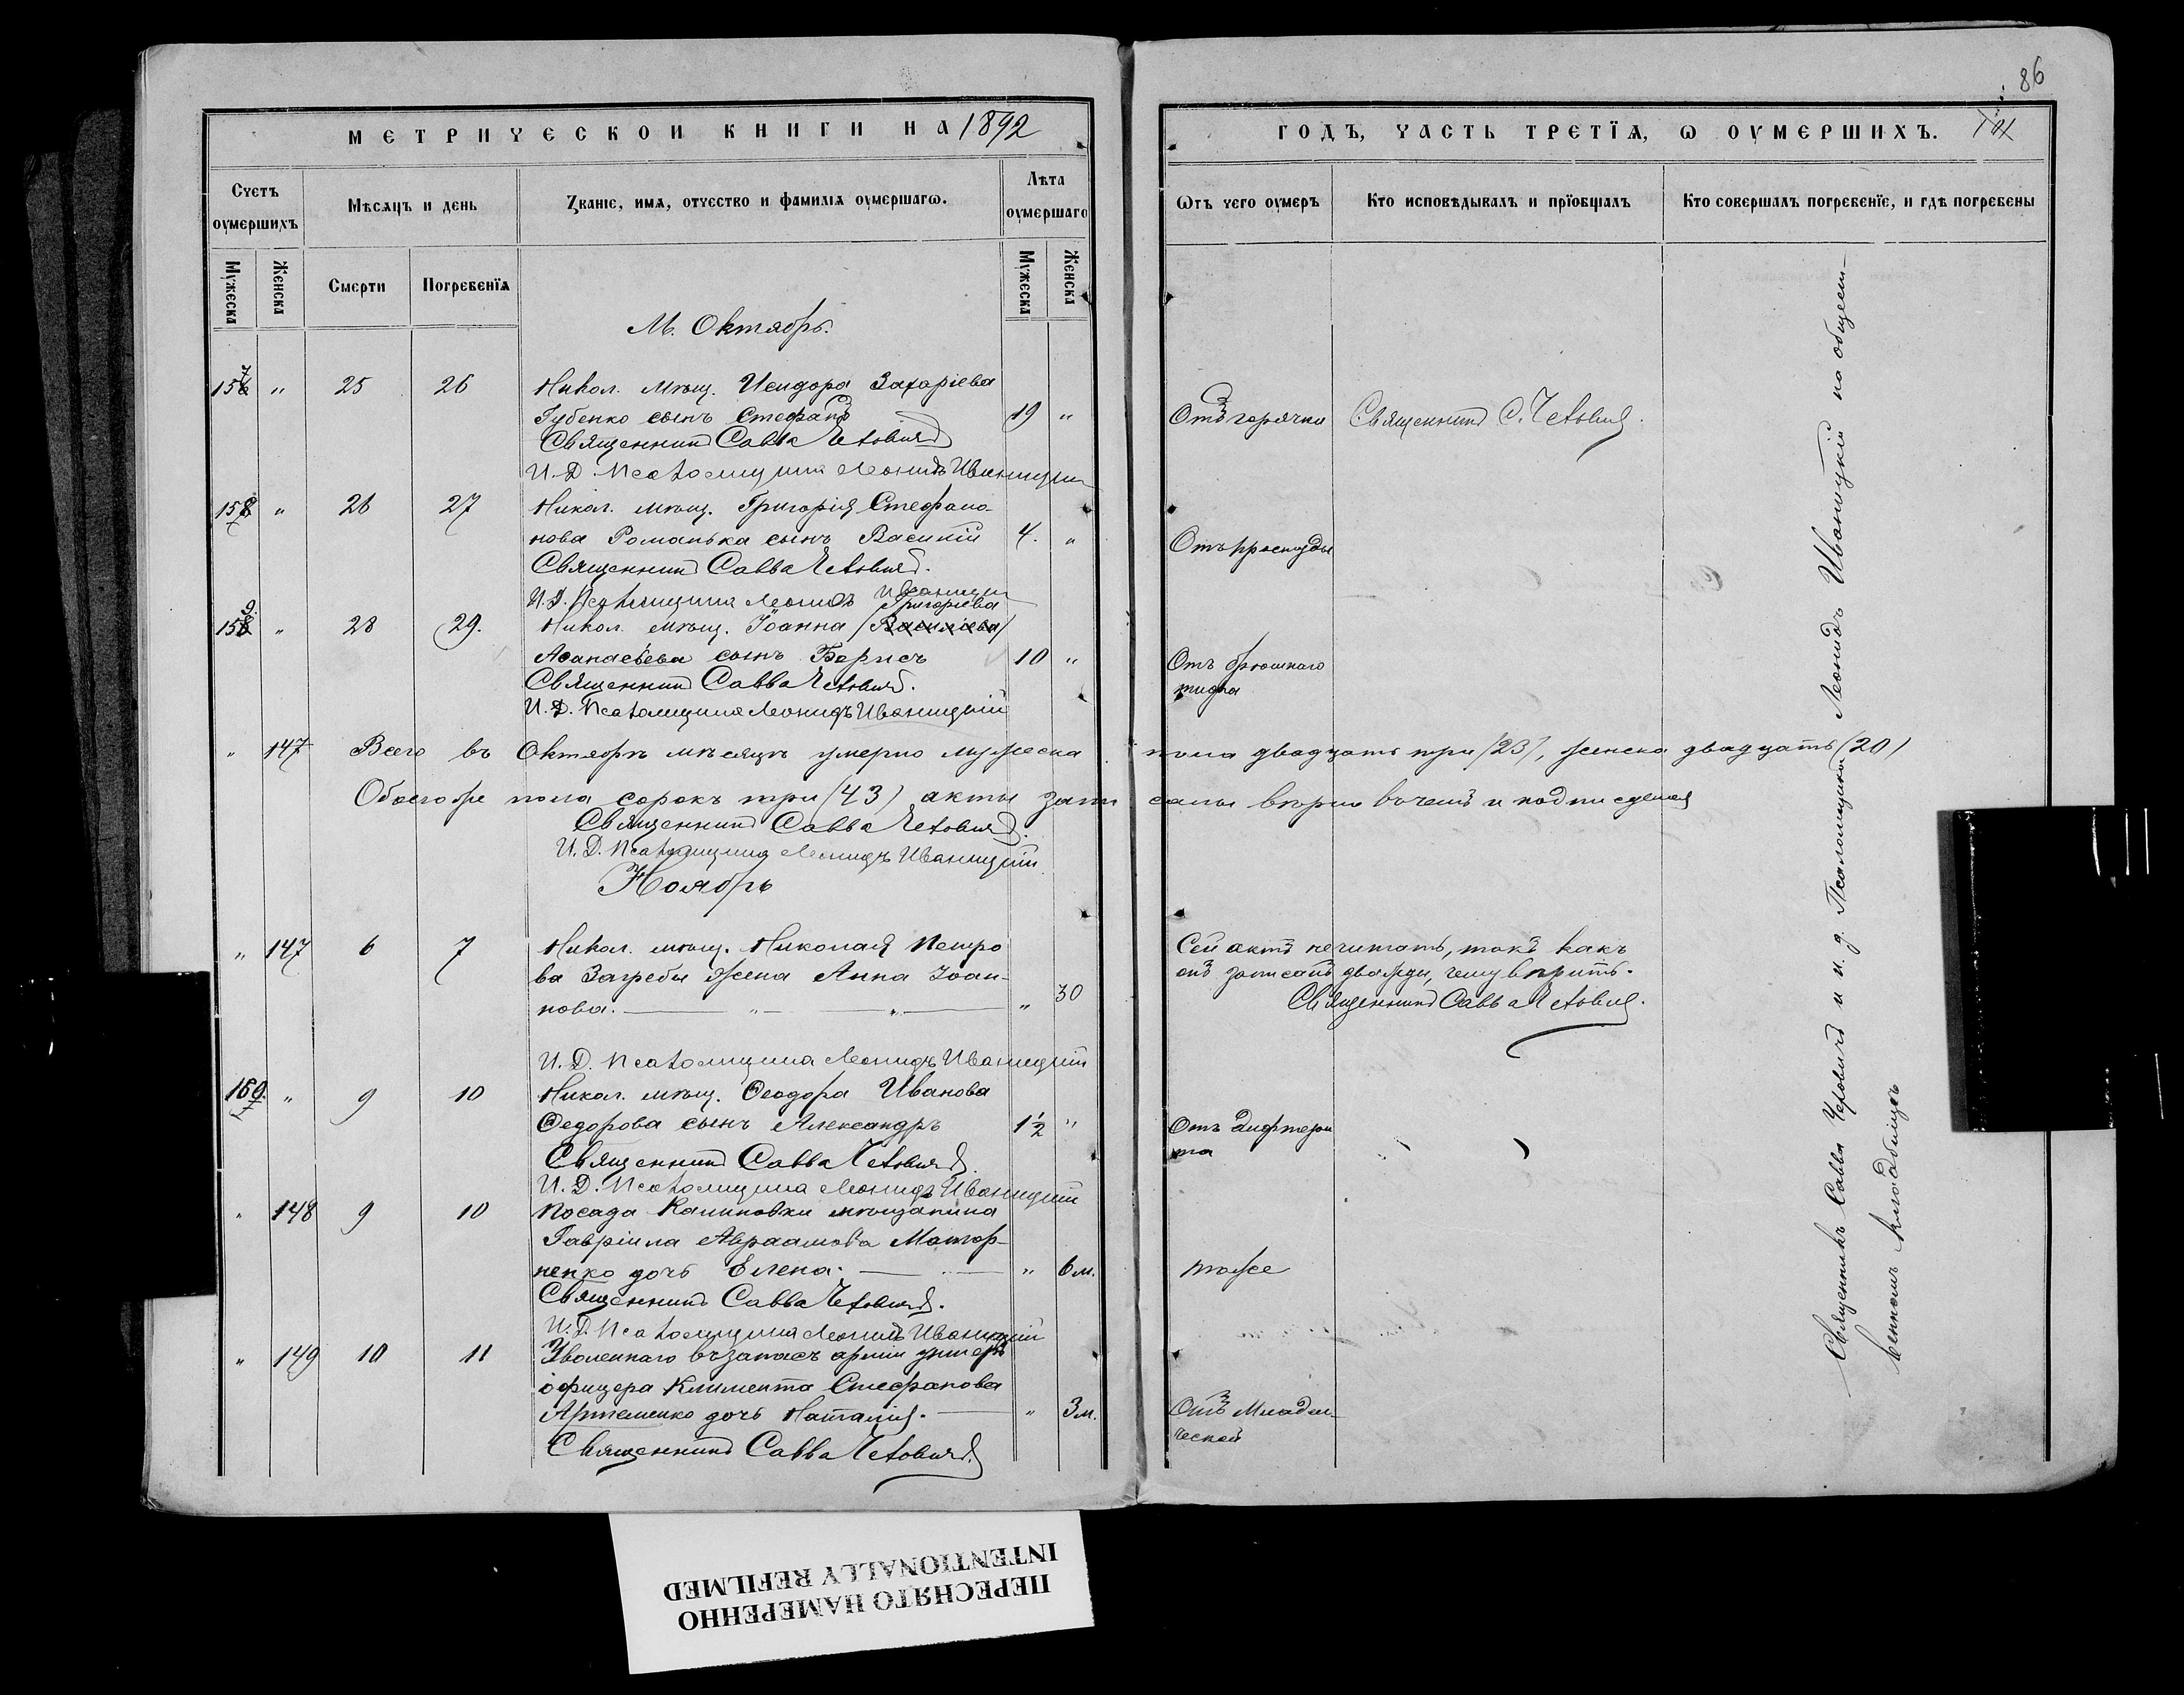 86
МЕТРИЧЕСКОЙ КНИГИ НА 1892
ГОДЪ, ЧАСТЬ ТРЕТЇѦ, Ѡ ОУМЕРШИХЪ.
Счетъ оумершихъ
Мѣсѧцъ и день
Званіе, имѧ, отчество и фамиліѧ оумершагѡ.
Лѣта оумершаго
Ѿтъ чего оумеръ
Кто исповѣдывалъ и прїобщалъ
Кто совершалъ погребенїе, и гдѣ погребены
Мужеска
Женска
Смерти
Погребенїѧ
Мужеска
Женска
М. Октябрь.
157 " 25 26 Никол. мѣщ. Исидора Захаріева
Губенко сынъ Стефанъ 19 " Отъ горячки Священникъ С.
Священникъ Савва
И. Д. Псаломщика Леонидъ Иваницкій
158 " 26 27 Никол. мѣщ. Григорія Стефано-
нова Романька сынъ Василій 4. " Отъ простуды
Священникъ Савва
И. Д. Псаломщика Леонидъ Иваницкій
Григоріева
159 " 28 29. Никол. мѣщ. Іоанна (Василіева)
Аѳанасьева сынъ Борисъ 10 " Отъ брюшнаго
тифа
Священникъ Савва
И. Д. Псаломщика Леонидъ Иваницкій
" 147 Всего въ Октябрѣ мѣсяцѣ умерло мужеска пола двадцать три (23), женска двадцать (20)
Обоего же пола сорокъ три (43) акты записаны вѣрно въ чемъ и подписуемся
Священникъ Савва
И. Д. Псаломщика Леонидъ Иваницкій
Ноябрь
" 147 6 7 Никол. мѣщ. Николая Петро
ва Загребы жена Анна Іоан-
нова. " 30
Сей актъ нечитать, такъ какъ
онъ записанъ дважды, чему вѣрить.
Священникъ Савва
И. Д. Псаломщика Леонидъ Иваницкій
160. " 9 10 Никол. мѣщ. Ѳеодора Иванова
Ѳедорова сынъ Александръ 1½ " Отъ дифтери
та
Священникъ Савва
И. Д. Псаломщика Леонидъ Иваницкій
" 148 9 10 Посада Калиновки мѣщанина
Гавріила Авраамова
ненко дочь Елена. " 6 м. тоже
Священникъ Савва
И. Д. Псаломщика Леонидъ Иваницкій
" 149 10 11 Уволеннаго въ запасъ арміи унтеръ
офицера Климента Стефанова
Артеменко дочь Наталія. " 3 м. Отъ Младен-
ческой
Священникъ Савва
Священникъ Савва и и. д. Псаломщика Леонидъ Иваницкій на общест-
венномъ кладбищѣ
ПЕРЕСНЯТО НАМЕРЕННО
INTENTIONALLY REFILMED